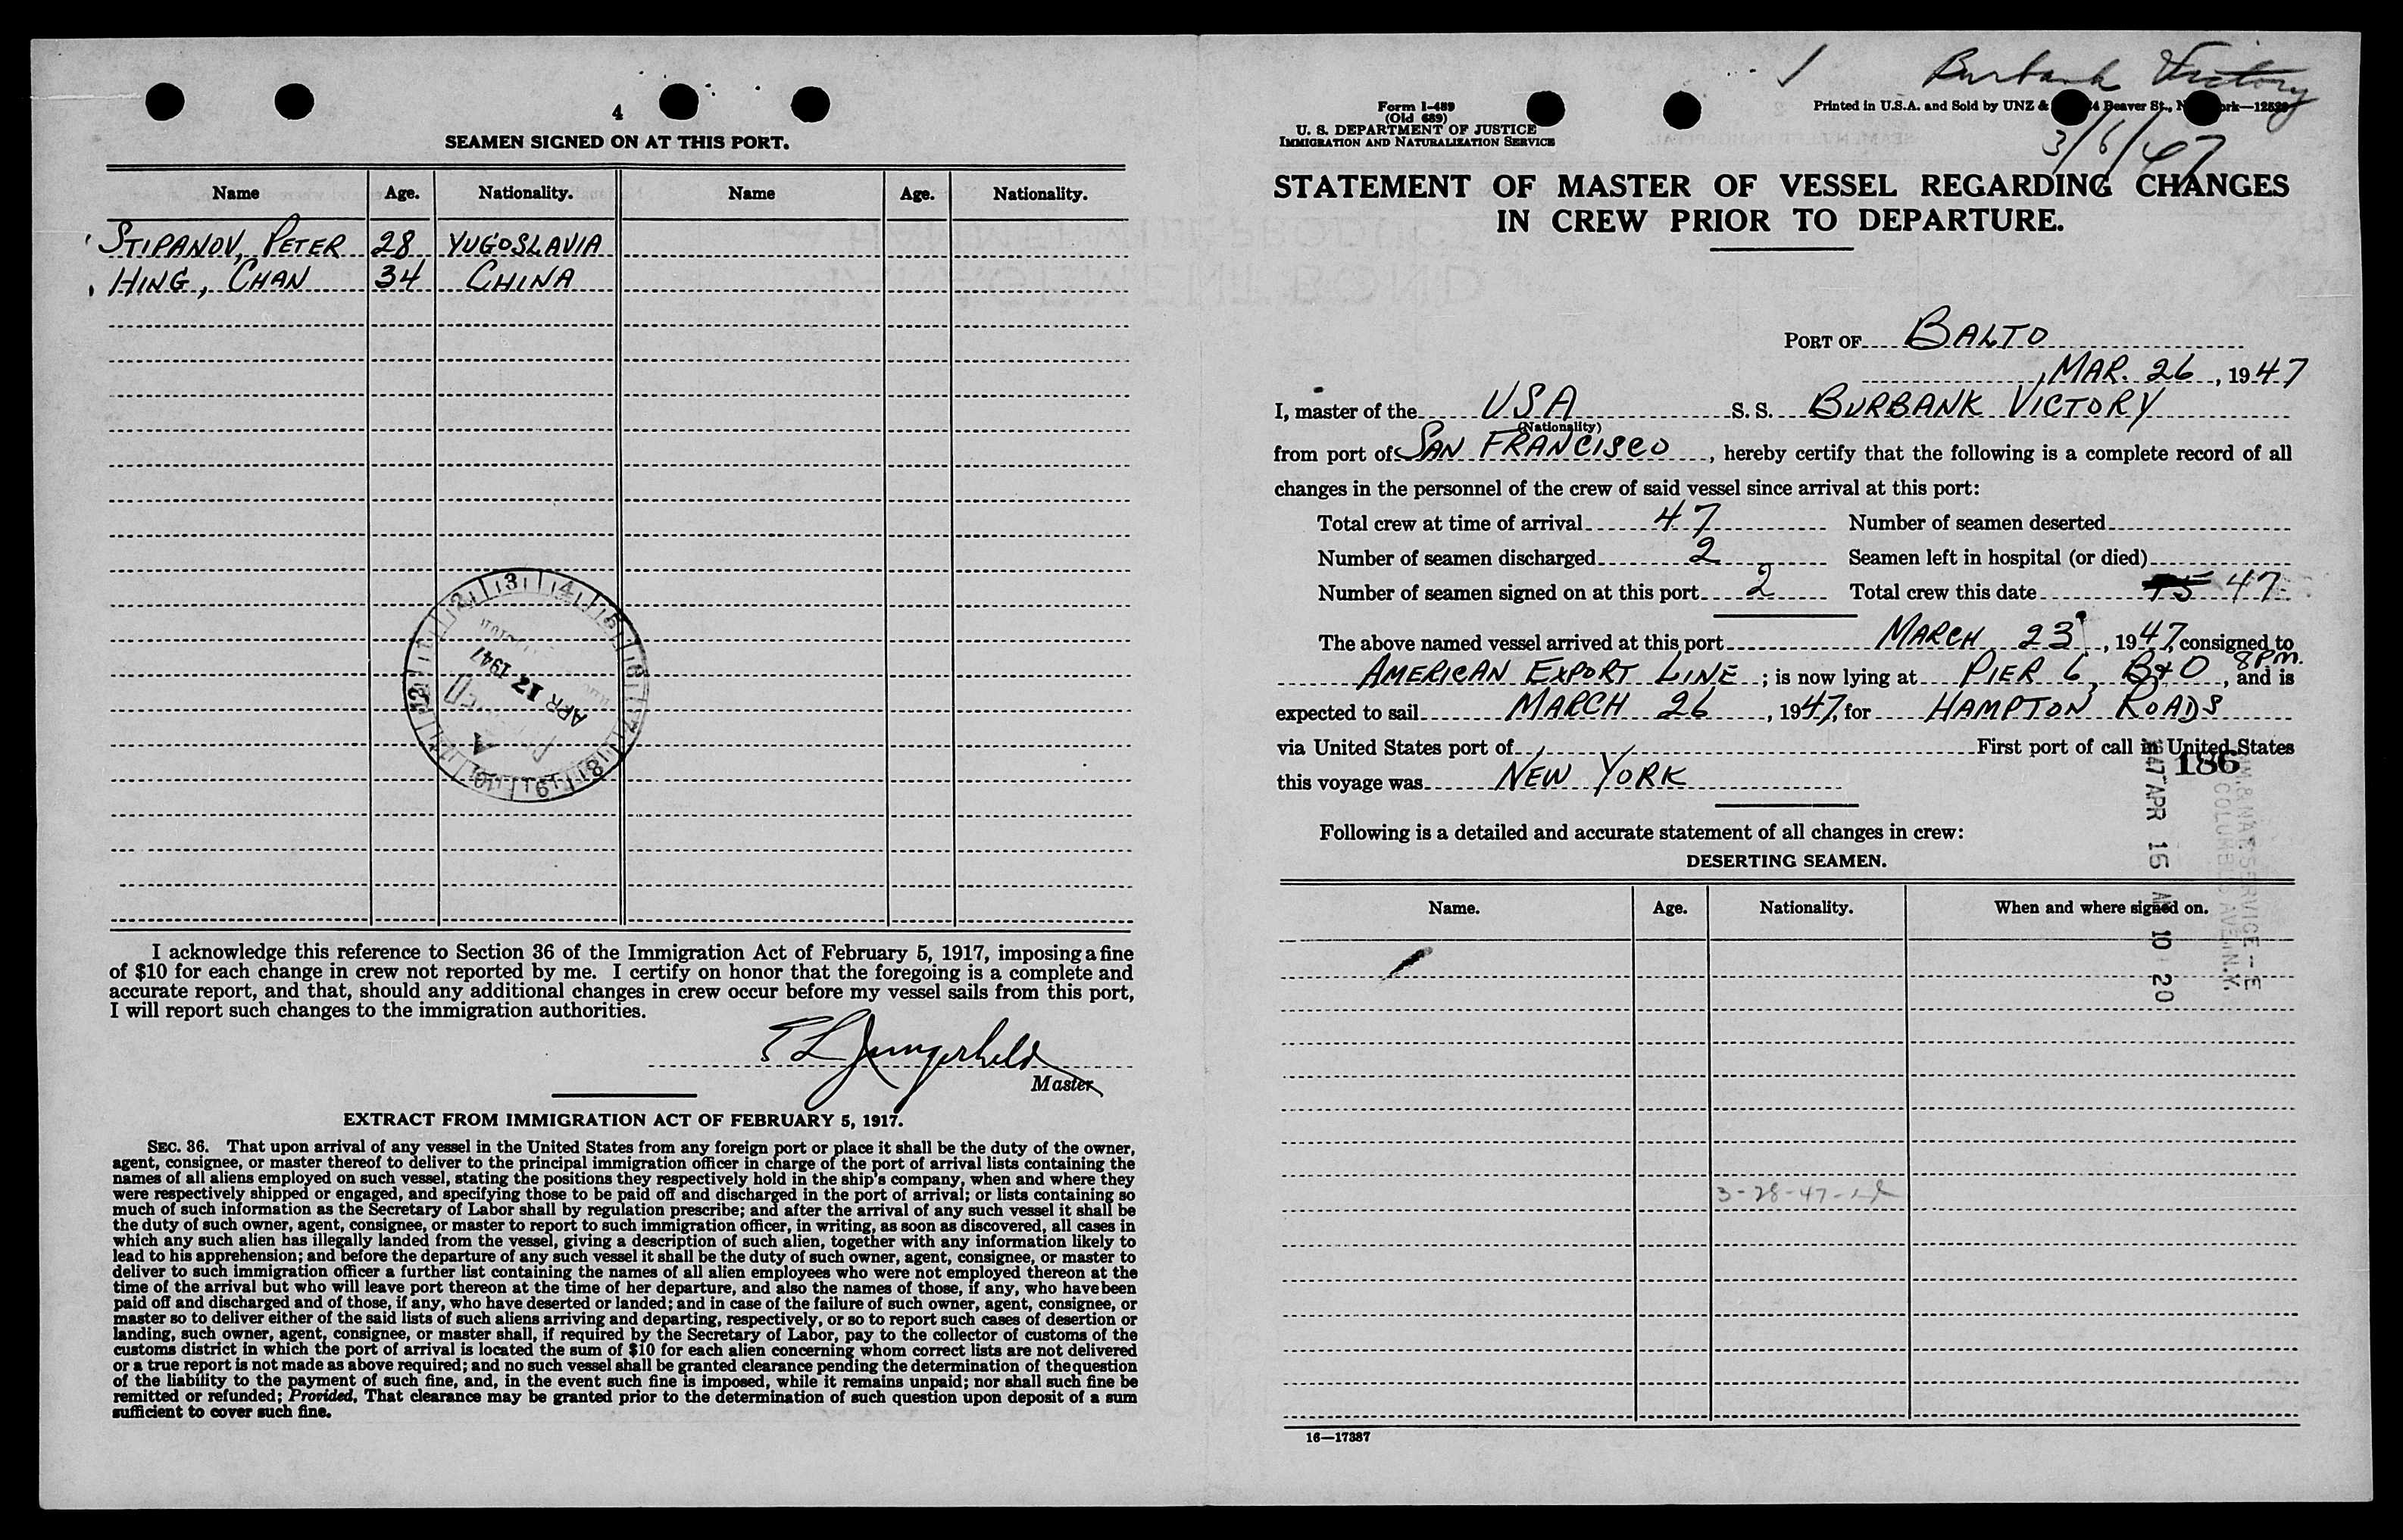 4
SEAMEN SIGNED ON AT THIS PORT.
Name Age. Nationality. Name Age. Nationality.
STIPANOV, PETER 28 YUGOSLAVIA
HING, CHAN 34 CHINA
2 3 4 5 6 7 8 9 10 11 12 1
APR 12 1947
I acknowledge this reference to Section 36 of the Immigration Act of February 5, 1917, imposing a fine
of $10 for each change in crew not reported by me. I certify on honor that the foregoing is a complete and
accurate report, and that, should any additional changes in crew occur before my vessel sails from this port,
I will report such changes to the immigration authorities.
Master
EXTRACT FROM IMMIGRATION ACT OF FEBRUARY 5, 1917.
SEC. 36. That upon arrival of any vessel in the United States from any foreign port or place it shall be the duty of the owner,
agent, consignee, or master thereof to deliver to the principal immigration officer in charge of the port of arrival lists containing the
names of all aliens employed on such vessel, stating the positions they respectively hold in the ship's company, when and where they
were respectively shipped or engaged, and specifying those to be paid off and discharged in the port of arrival; or lists containing so
much of such information as the Secretary of Labor shall by regulation prescribe; and after the arrival of any such vessel it shall be
the duty of such owner, agent, consignee, or master to report to such immigration officer, in writing, as soon as discovered, all cases in
which any such alien has illegally landed from the vessel, giving a description of such alien, together with any information likely to
lead to his apprehension; and before the departure of any such vessel it shall be the duty of such owner, agent, consignee, or master to
deliver to such immigration officer a further list containing the names of all alien employees who were not employed thereon at the
time of the arrival but who will leave port thereon at the time of her departure, and also the names of those, if any, who have been
paid off and discharged and of those, if any, who have deserted or landed; and in case of the failure of such owner, agent, consignee, or
master so to deliver either of the said lists of such aliens arriving and departing, respectively, or so to report such cases of desertion or
landing, such owner, agent, consignee, or master shall, if required by the Secretary of Labor, pay to the collector of customs of the
customs district in which the port of arrival is located the sum of $10 for each alien concerning whom correct lists are not delivered
or a true report is not made as above required; and no such vessel shall be granted clearance pending the determination of the question
of the liability to the payment of such fine, and, in the event such fine is imposed, while it remains unpaid; nor shall such fine be
remitted or refunded; Provided, That clearance may be granted prior to the determination of such question upon deposit of a sum
sufficient to cover such fine.
Burbank Victory
3/6/47
Form I-489
(Old 689)
U. S. DEPARTMENT OF JUSTICE
IMMIGRATION AND NATURALIZATION SERVICE
Printed in U.S.A. and Sold by UNZ & Beaver St.,
STATEMENT OF MASTER OF VESSEL REGARDING CHANGES
IN CREW PRIOR TO DEPARTURE.
PORT OF BALTO
MAR. 26, 1947
I, master of the USA S. S. BURBANK VICTORY
(Nationality)
from port of SAN FRANCISCO, hereby certify that the following is a complete record of all
changes in the personnel of the crew of said vessel since arrival at this port:
Total crew at time of arrival 47 Number of seamen deserted
Number of seamen discharged 2 Seamen left in hospital (or died)
Number of seamen signed on at this port 2 Total crew this date 47
The above named vessel arrived at this port MARCH 23, 1947, consigned to
AMERICAN EXPORT LINE; is now lying at PIER 6, B&O, 8 P.M. and is
expected to sail MARCH 26, 1947, for HAMPTON ROADS
via United States port of First port of call in United States
this voyage was NEW YORK
186
1947 APR 15 AM 10 20
IMM. & NAT. SERVICE - E
COLUMBUS AVE. N.Y.
Following is a detailed and accurate statement of all changes in crew:
DESERTING SEAMEN.
Name. Age. Nationality. When and where signed on.
3-28-47
16—17387